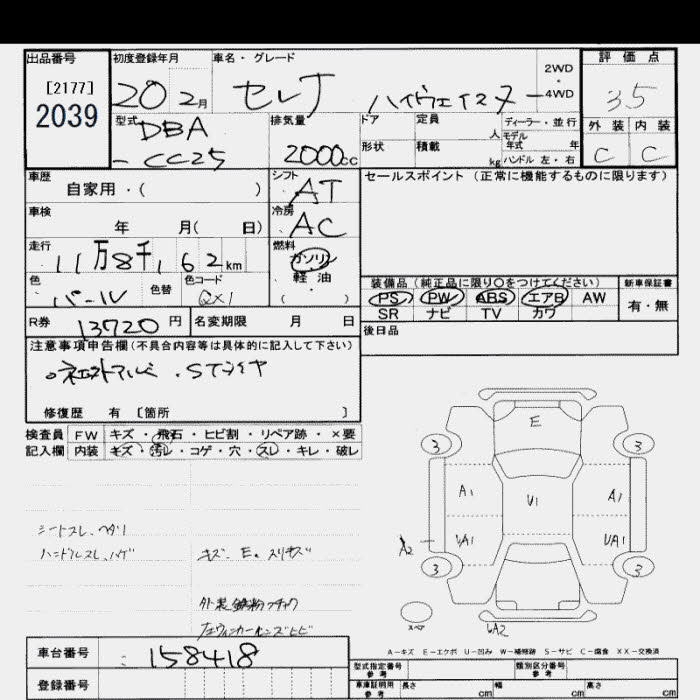 出品番号 初度登録年月 車名・グレード 評価点
[2177] 2WD
2039 20 2月 セレナ ハイウェイスター ・4WD 3.5
型式 DBA 排気量 ドア 定員 人 ディーラー・並行 外装 内装
モデル年式 年
- CC25 2000cc 形状 積載 kg ハンドル 左・右 C C
車歴 シフト セールスポイント (正常に機能するものに限ります)
自家用・( ) AT
車検 冷房
年 月( 日) AC
走行 11万8千162km 燃料
ガソリン
色 色替 色コード 軽油
パール QX1 ( )
装備品 (純正品に限り○をつけてください) 新車保証書
PS PW ABS エアB AW 有・無
SR ナビ TV カワ
R券 13720円 名変期限 月 日 後日品
注意事項申告欄(不具合内容等は具体的に記入して下さい)
修復歴 有 [箇所 ]
検査員 FW キズ・飛石・ヒビ割・リペア跡・×要
記入欄 内装 キズ・汚レ・コゲ・穴・スレ・キレ・破レ
E
3 3
A1 U1 A1
A2 UA1 UA1
3 3
スペア UA2
シートスレ、ヘタリ
ハンドルスレ、ハゲ キズ、E、スリキズ
外装鉄粉フチャク
左ウィンカーレンズヒビ
A-キズ E-エクボ U-凹み W-補修跡 S-サビ C-腐食 XX-交換済
車台番号 158418
登録番号
型式指定番号 参考 類別区分番号 参考
車庫証明用 参考 長さ cm 幅 cm 高さ cm